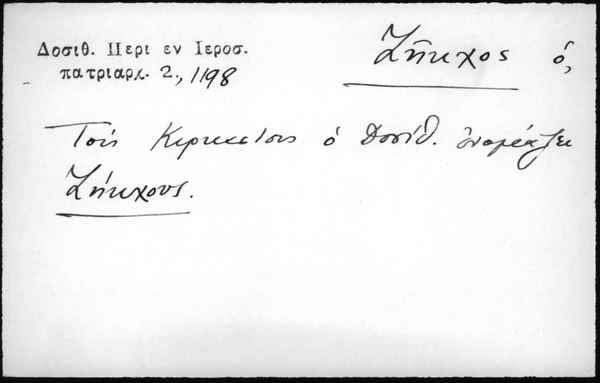 Δοσιθ. Περι εν Ιεροσ.
πατριαρχ. 2., 1198
Ζῆκχος ὁ,
Τοὺς Κιρκασίους ὁ Δοσίθ. ὀνομάζει
Ζήκχους.